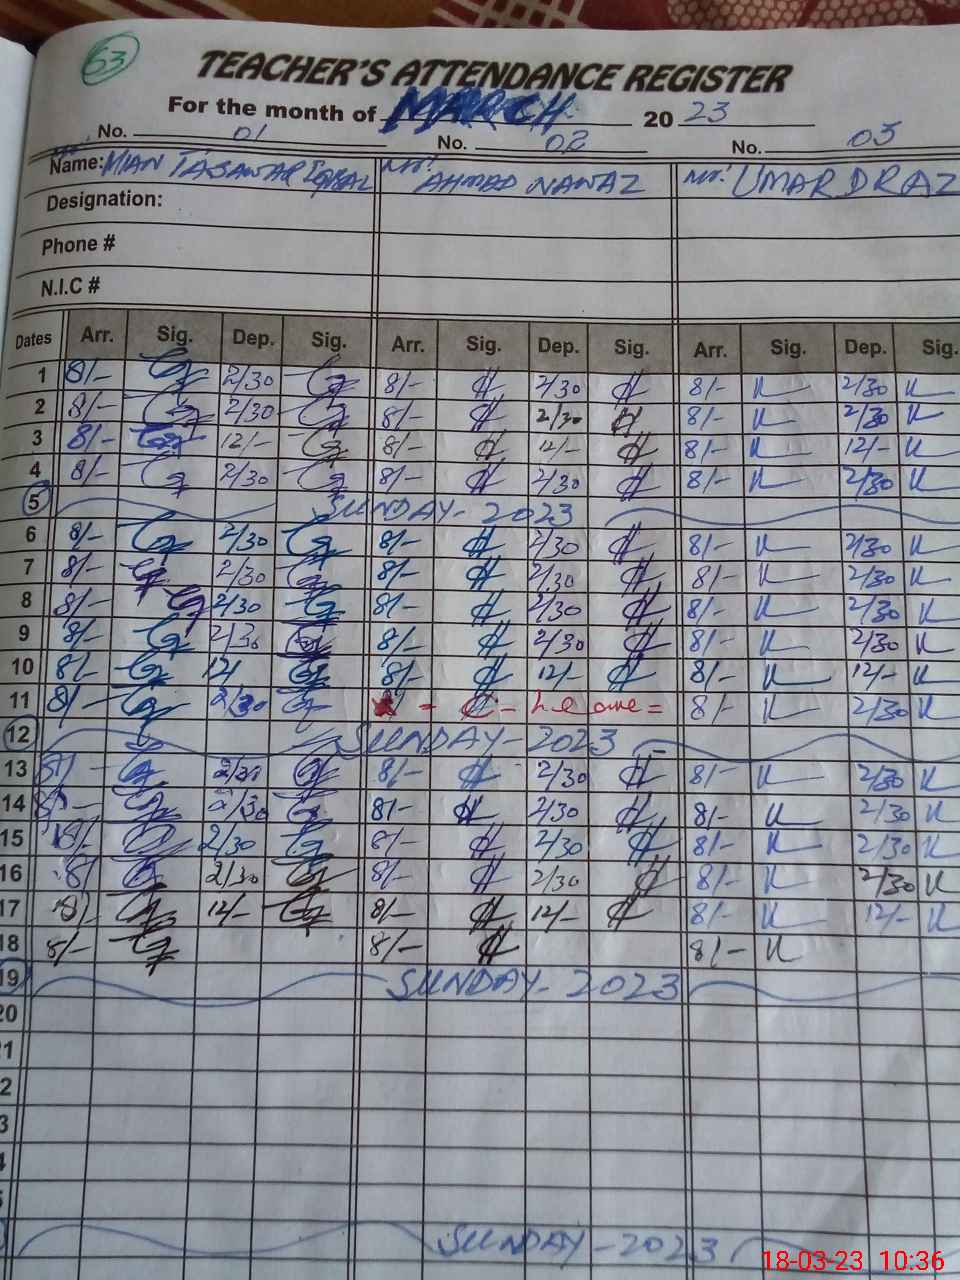 53
TEACHER'S ATTENDANCE REGISTER
For the month of MARCH 2023
No. 01 No. 02 No. 03
Name: Mr. MIAN TASAWAR IQBAL Mr. AHMAD NAWAZ Mr. UMAR DRAZ
Designation:
Phone #
N.I.C #
Dates Arr. Sig. Dep. Sig. Arr. Sig. Dep. Sig. Arr. Sig. Dep. Sig.
1 8/- 2/30 8/- 2/30 8/- 2/30
2 8/- 2/30 8/- 2/30 8/- 2/30
3 8/- 12/- 8/- 12/- 8/- 12/-
4 8/- 2/30 8/- 2/30 8/- 2/30
5 SUNDAY - 2023
6 8/- 2/30 8/- 2/30 8/- 2/30
7 8/- 2/30 8/- 2/30 8/- 2/30
8 8/- 2/30 8/- 2/30 8/- 2/30
9 8/- 2/30 8/- 2/30 8/- 2/30
10 8/- 12/ 8/- 12/- 8/- 12/-
11 8/- 2/30 - C - Leave = 8/- 2/30
12 SUNDAY - 2023
13 8/- 2/30 8/- 2/30 8/- 2/30
14 8/- 2/30 8/- 2/30 8/- 2/30
15 8/- 2/30 8/- 2/30 8/- 2/30
16 8/ 2/30 8/- 2/30 8/- 2/30
17 8/- 12/- 8/- 12/- 8/- 12/-
18 8/- 8/- 8/-
19 SUNDAY - 2023
20
1
2
3
4
5
SUNDAY - 2023
18-03-23 10:36